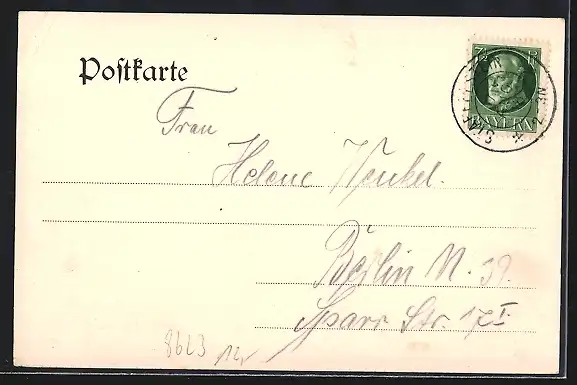 Postkarte
7½ P
BAYERN
Frau
Helene Henkel.
Berlin N. 39.
Sparr Str. 17 I
8623 12,-